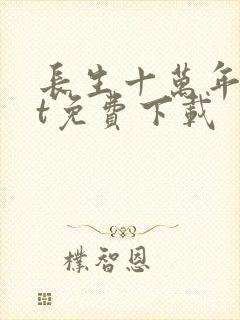 長生十萬年
t免費下載
樸智恩